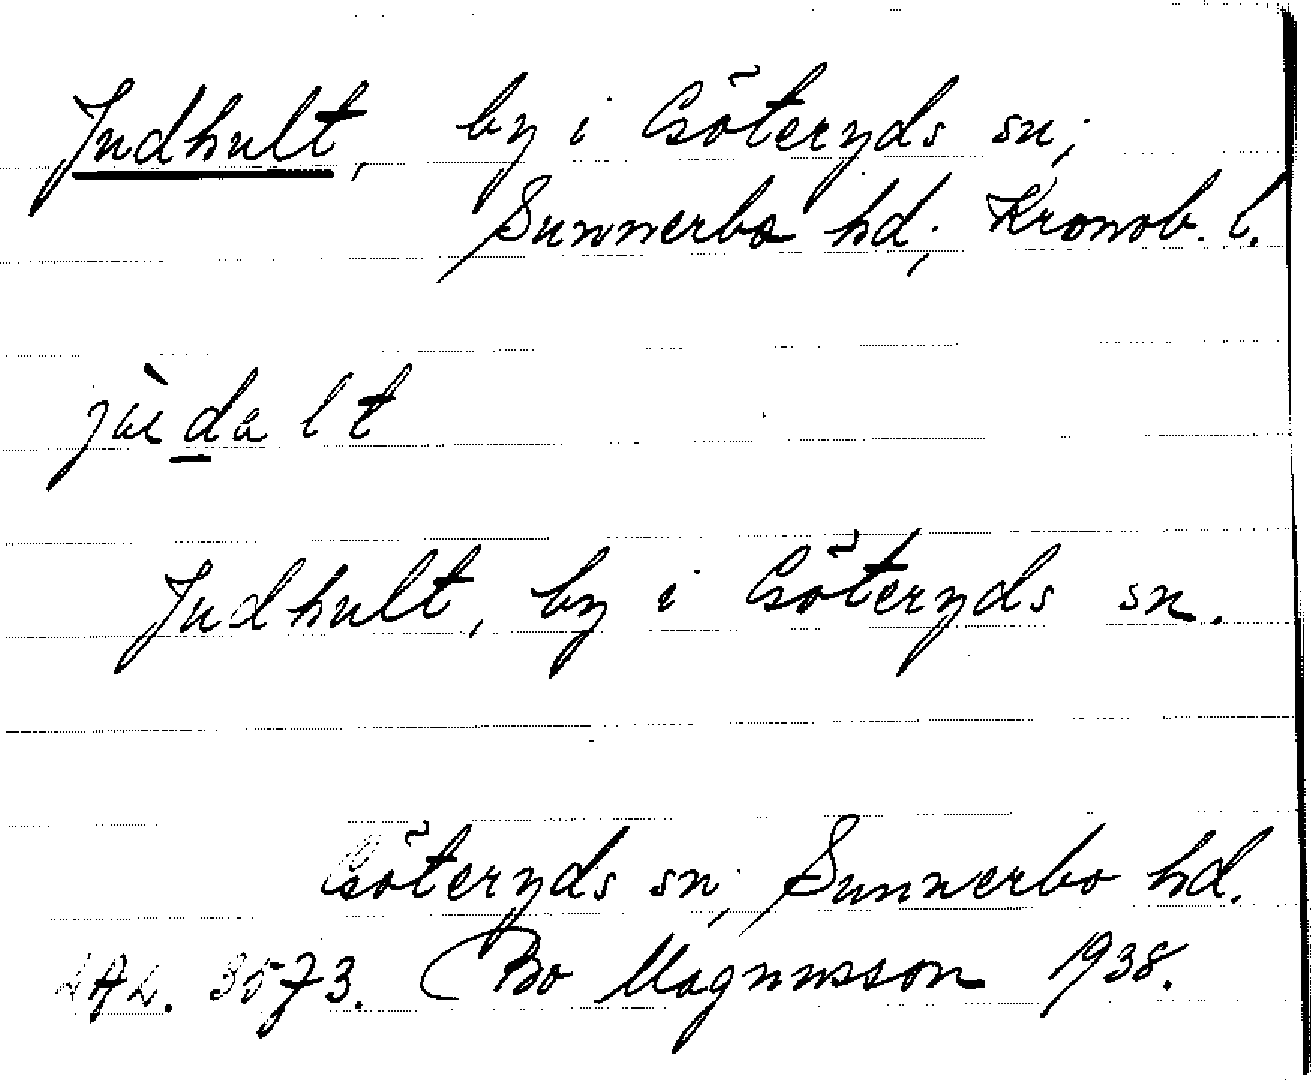 Judhult, by i Göteryds sn;
Sunnerbo hd; Kronob. l.
jùdalt
Judhult, by i Göteryds sn.
Göteryds sn; Sunnerbo hd.
3573. Bo Magnusson 1938.